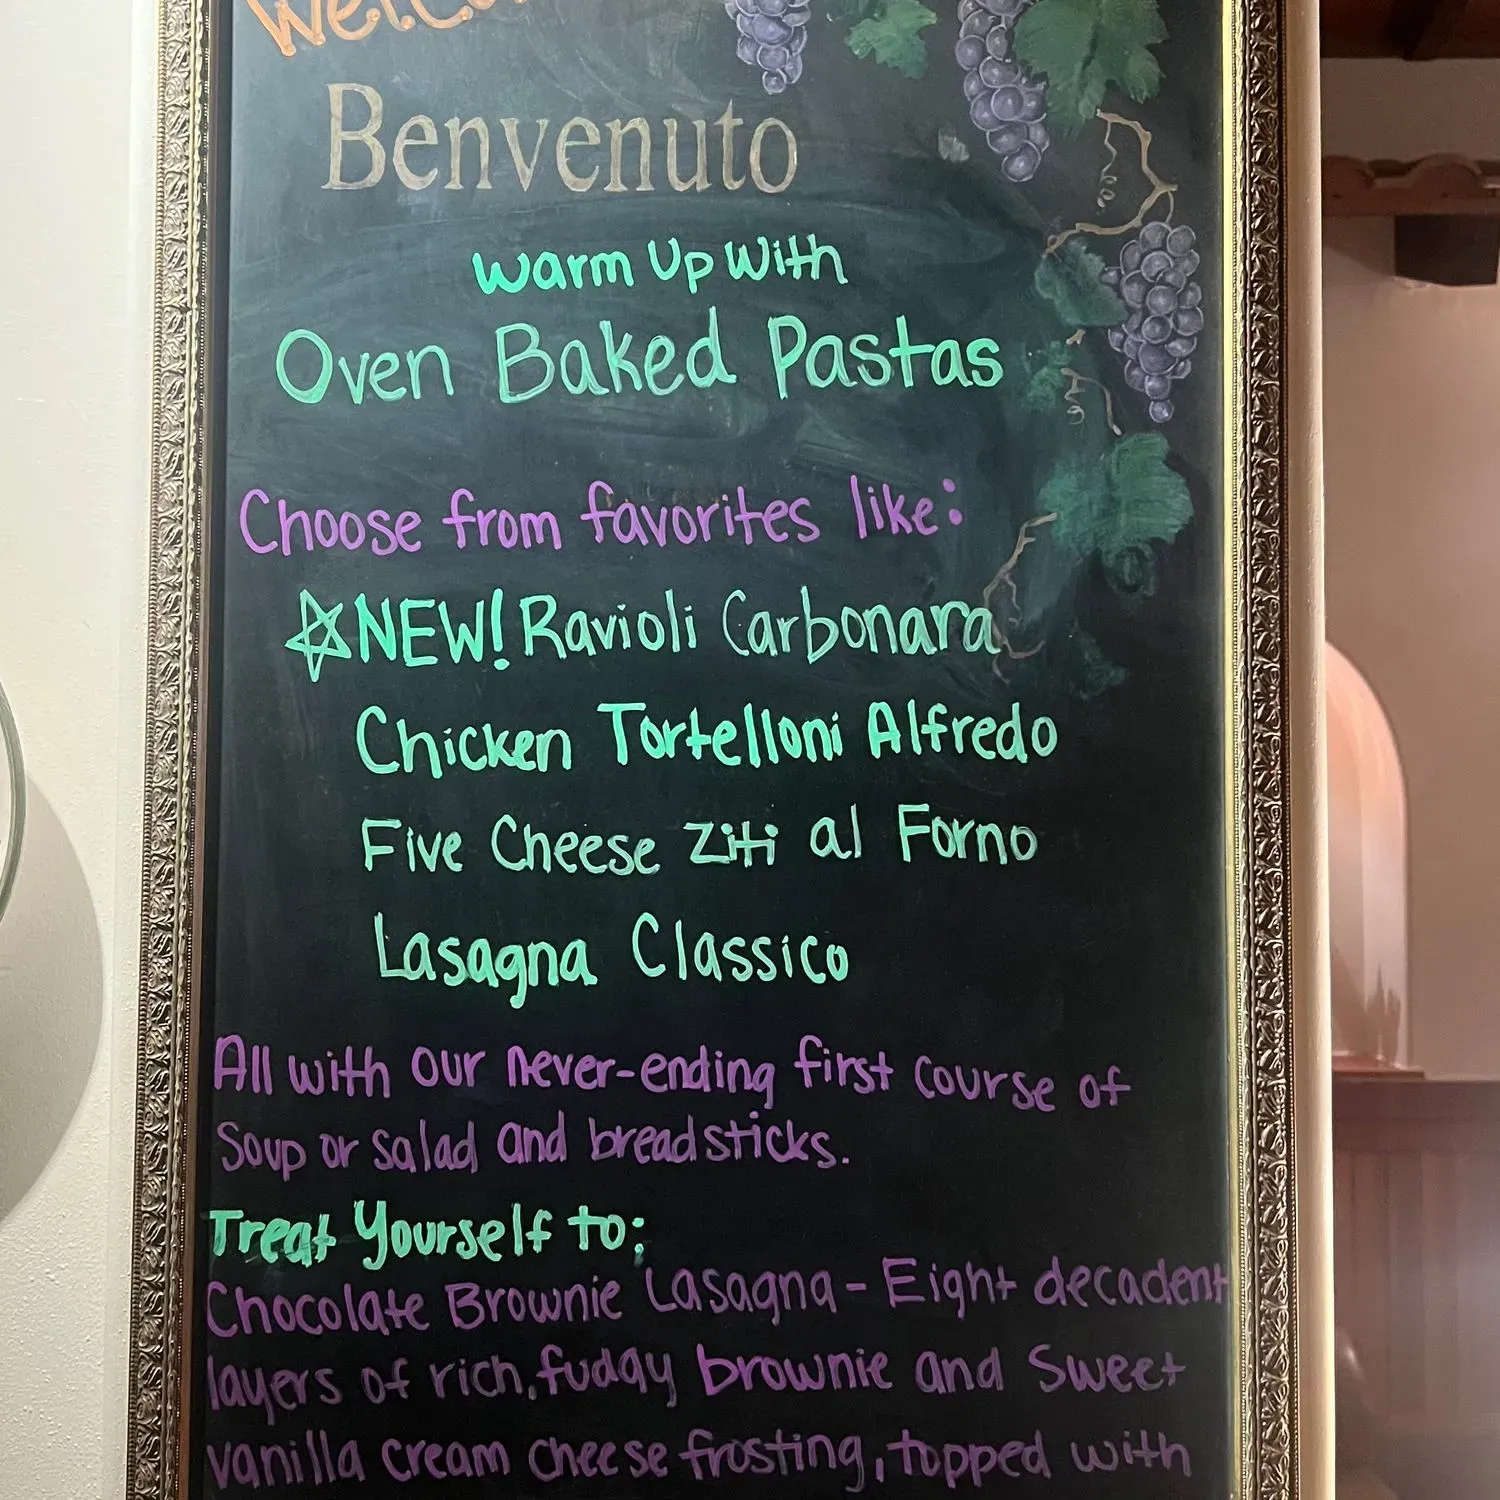 Welco
Benvenuto
Warm Up With
Oven Baked Pastas
Choose from favorites like:
NEW! Ravioli Carbonara
Chicken Tortelloni Alfredo
Five Cheese Ziti al Forno
Lasagna Classico
All with our never-ending first course of
Soup or salad and breadsticks.
Treat Yourself to:
Chocolate Brownie Lasagna - Eight decadent
layers of rich, fudgy brownie and Sweet
vanilla cream cheese frosting, topped with